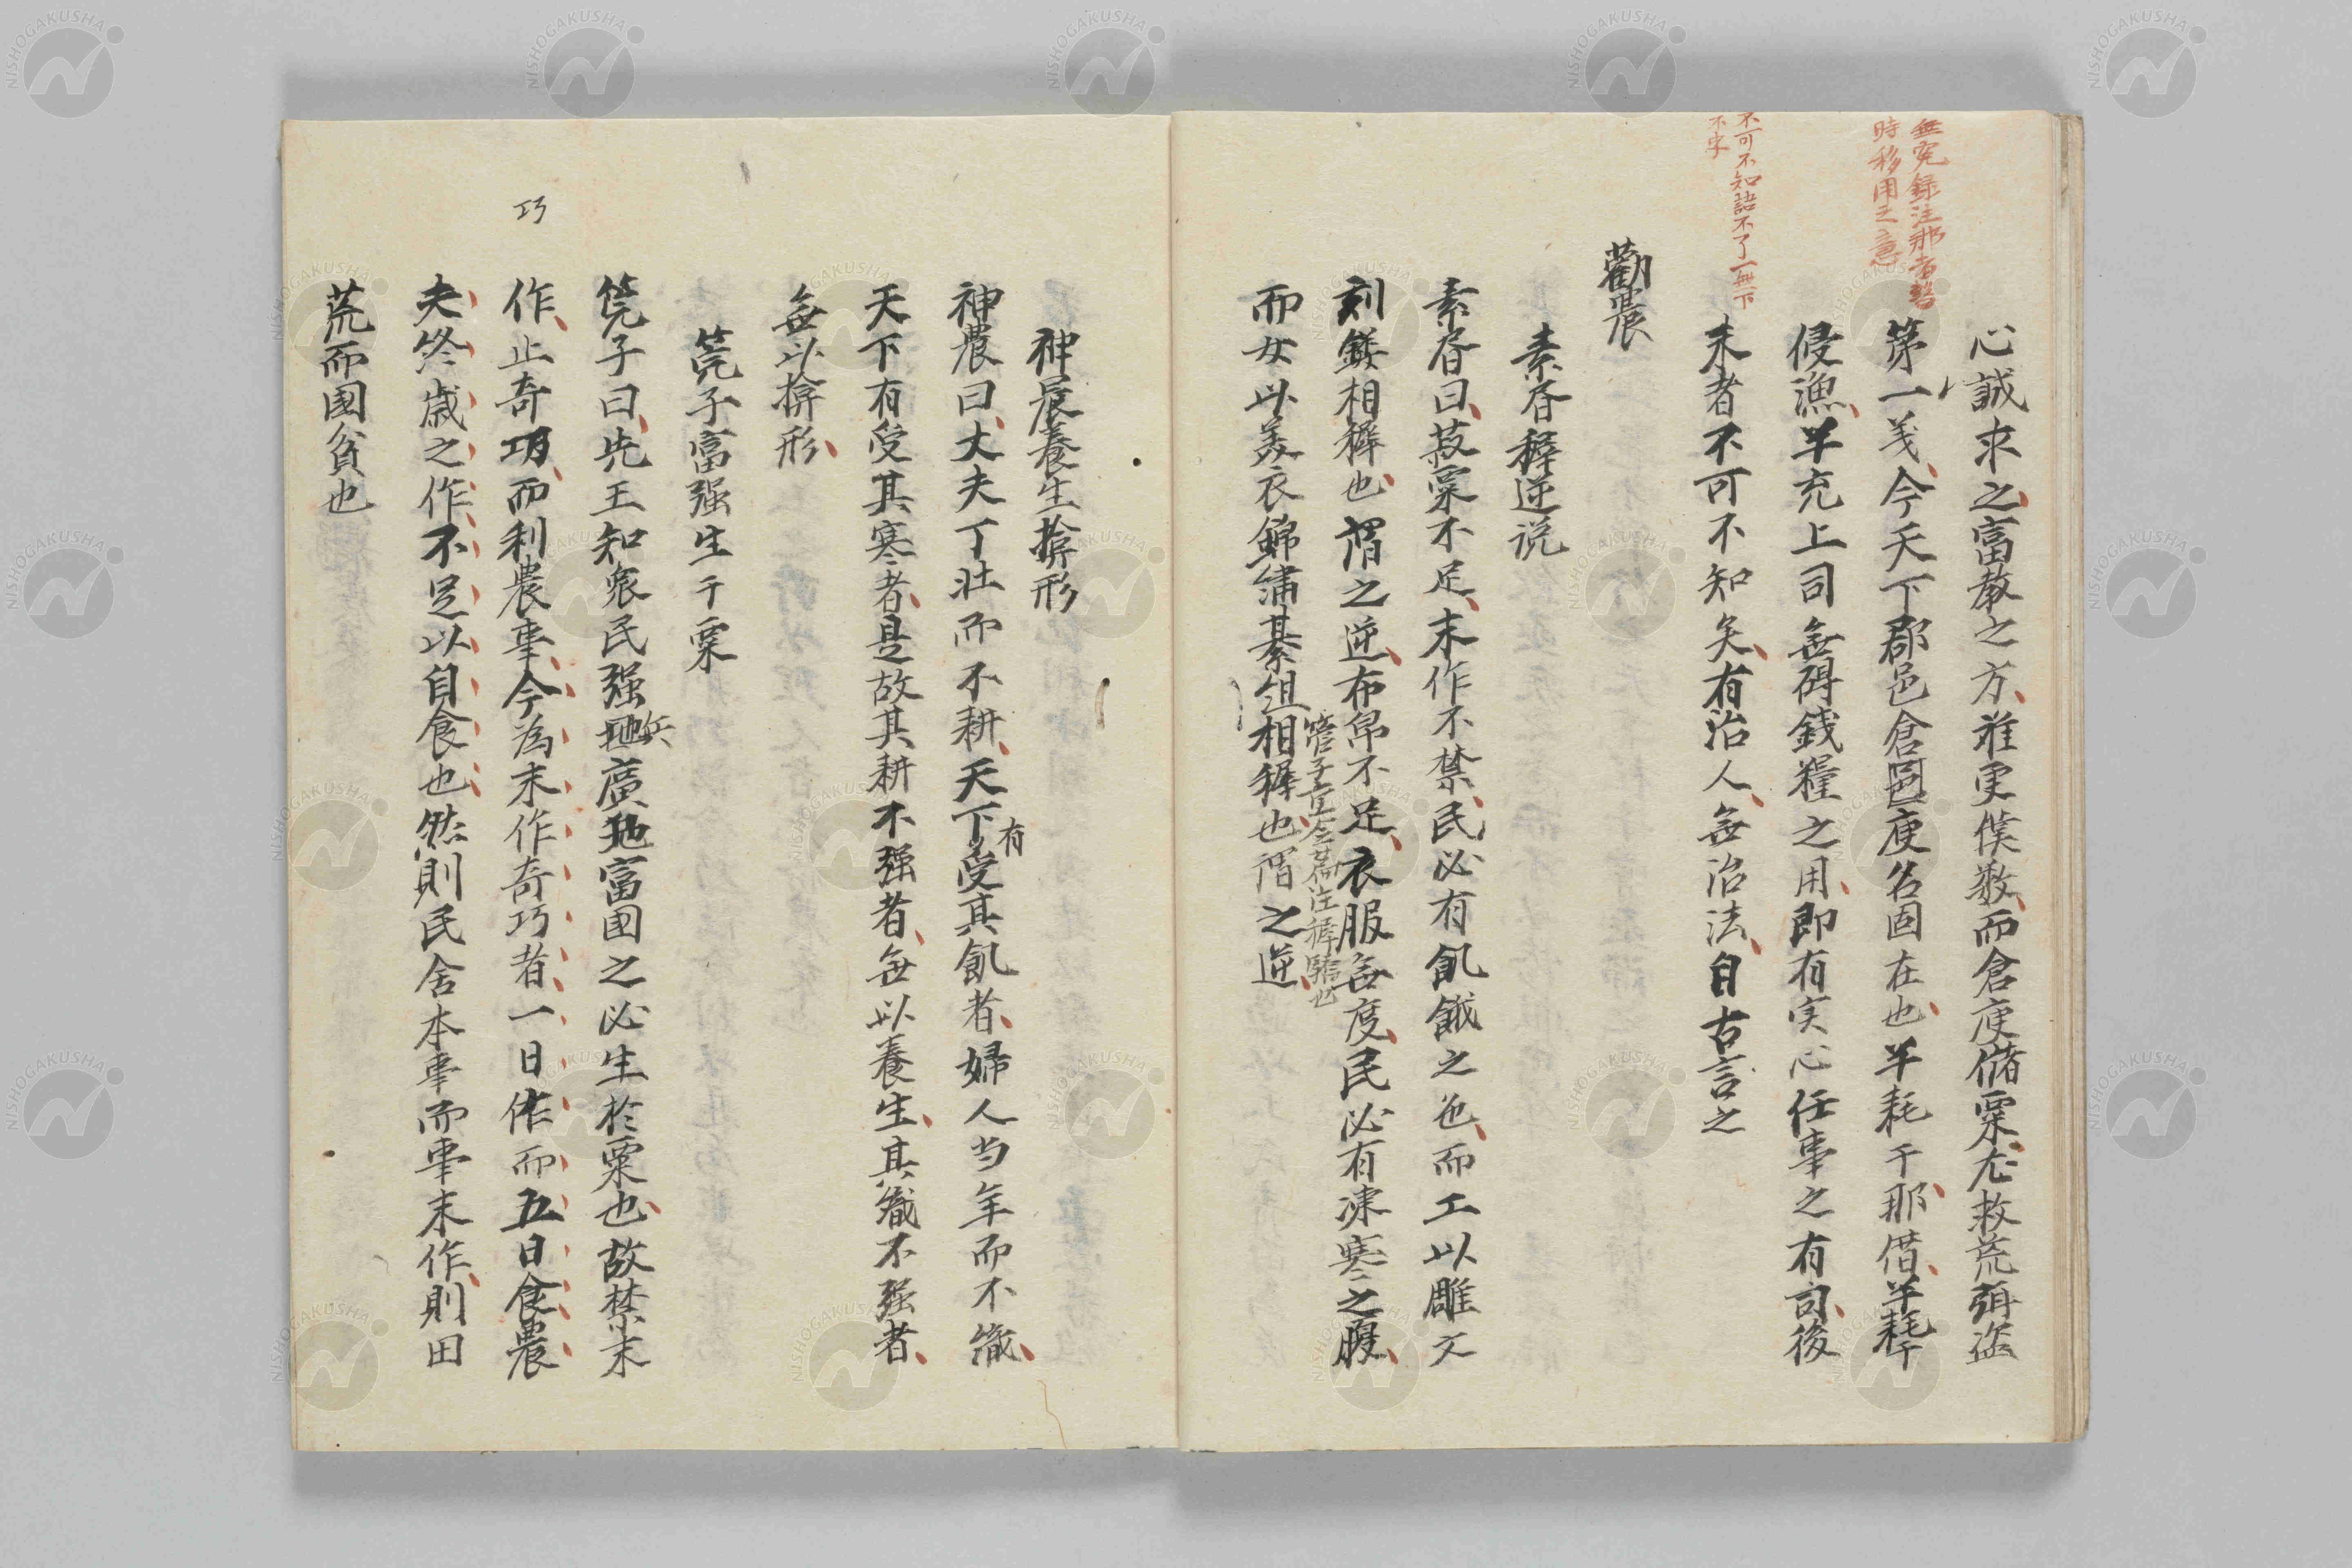 無冤録注那者暫
時移用之意
心誠求之富教之方雖更僕數而倉庾儲粟尤救荒弭盗
第一義今天下郡邑倉庾名固在也半耗于那借半耗于
侵漁半充上司無碍錢糧之用即有実心任事之有司後
不可不知詰不了一無下
不字
末者不可不知矣有治人無治法自古言之
勸農
素春穉逆説
素春曰菽粟不足末作不禁民必有飢餓之色而工以雕文
刻鏤相穉也謂之逆布帛不足衣服無度民必有凍寒之腹
管子重令篇注穉驕也
而女以美衣錦繡綦組相穉也謂之逆
神農養生揜形
神農曰丈夫丁壮而不耕天下有受其飢者婦人当年而不織
天下有受其寒者是故其耕不强者無以養生其織不强者
無以揜形
筦子富强生于粟
筦子曰先王知衆民强兵廣地富国之必生於粟也故禁末
巧
作止奇巧而利農事今為末作奇巧者一日作而五日食農
夫終歳之作不足以自食也然則民舎本事而事末作則田
荒而國貧也
NISHOGAKUSHA